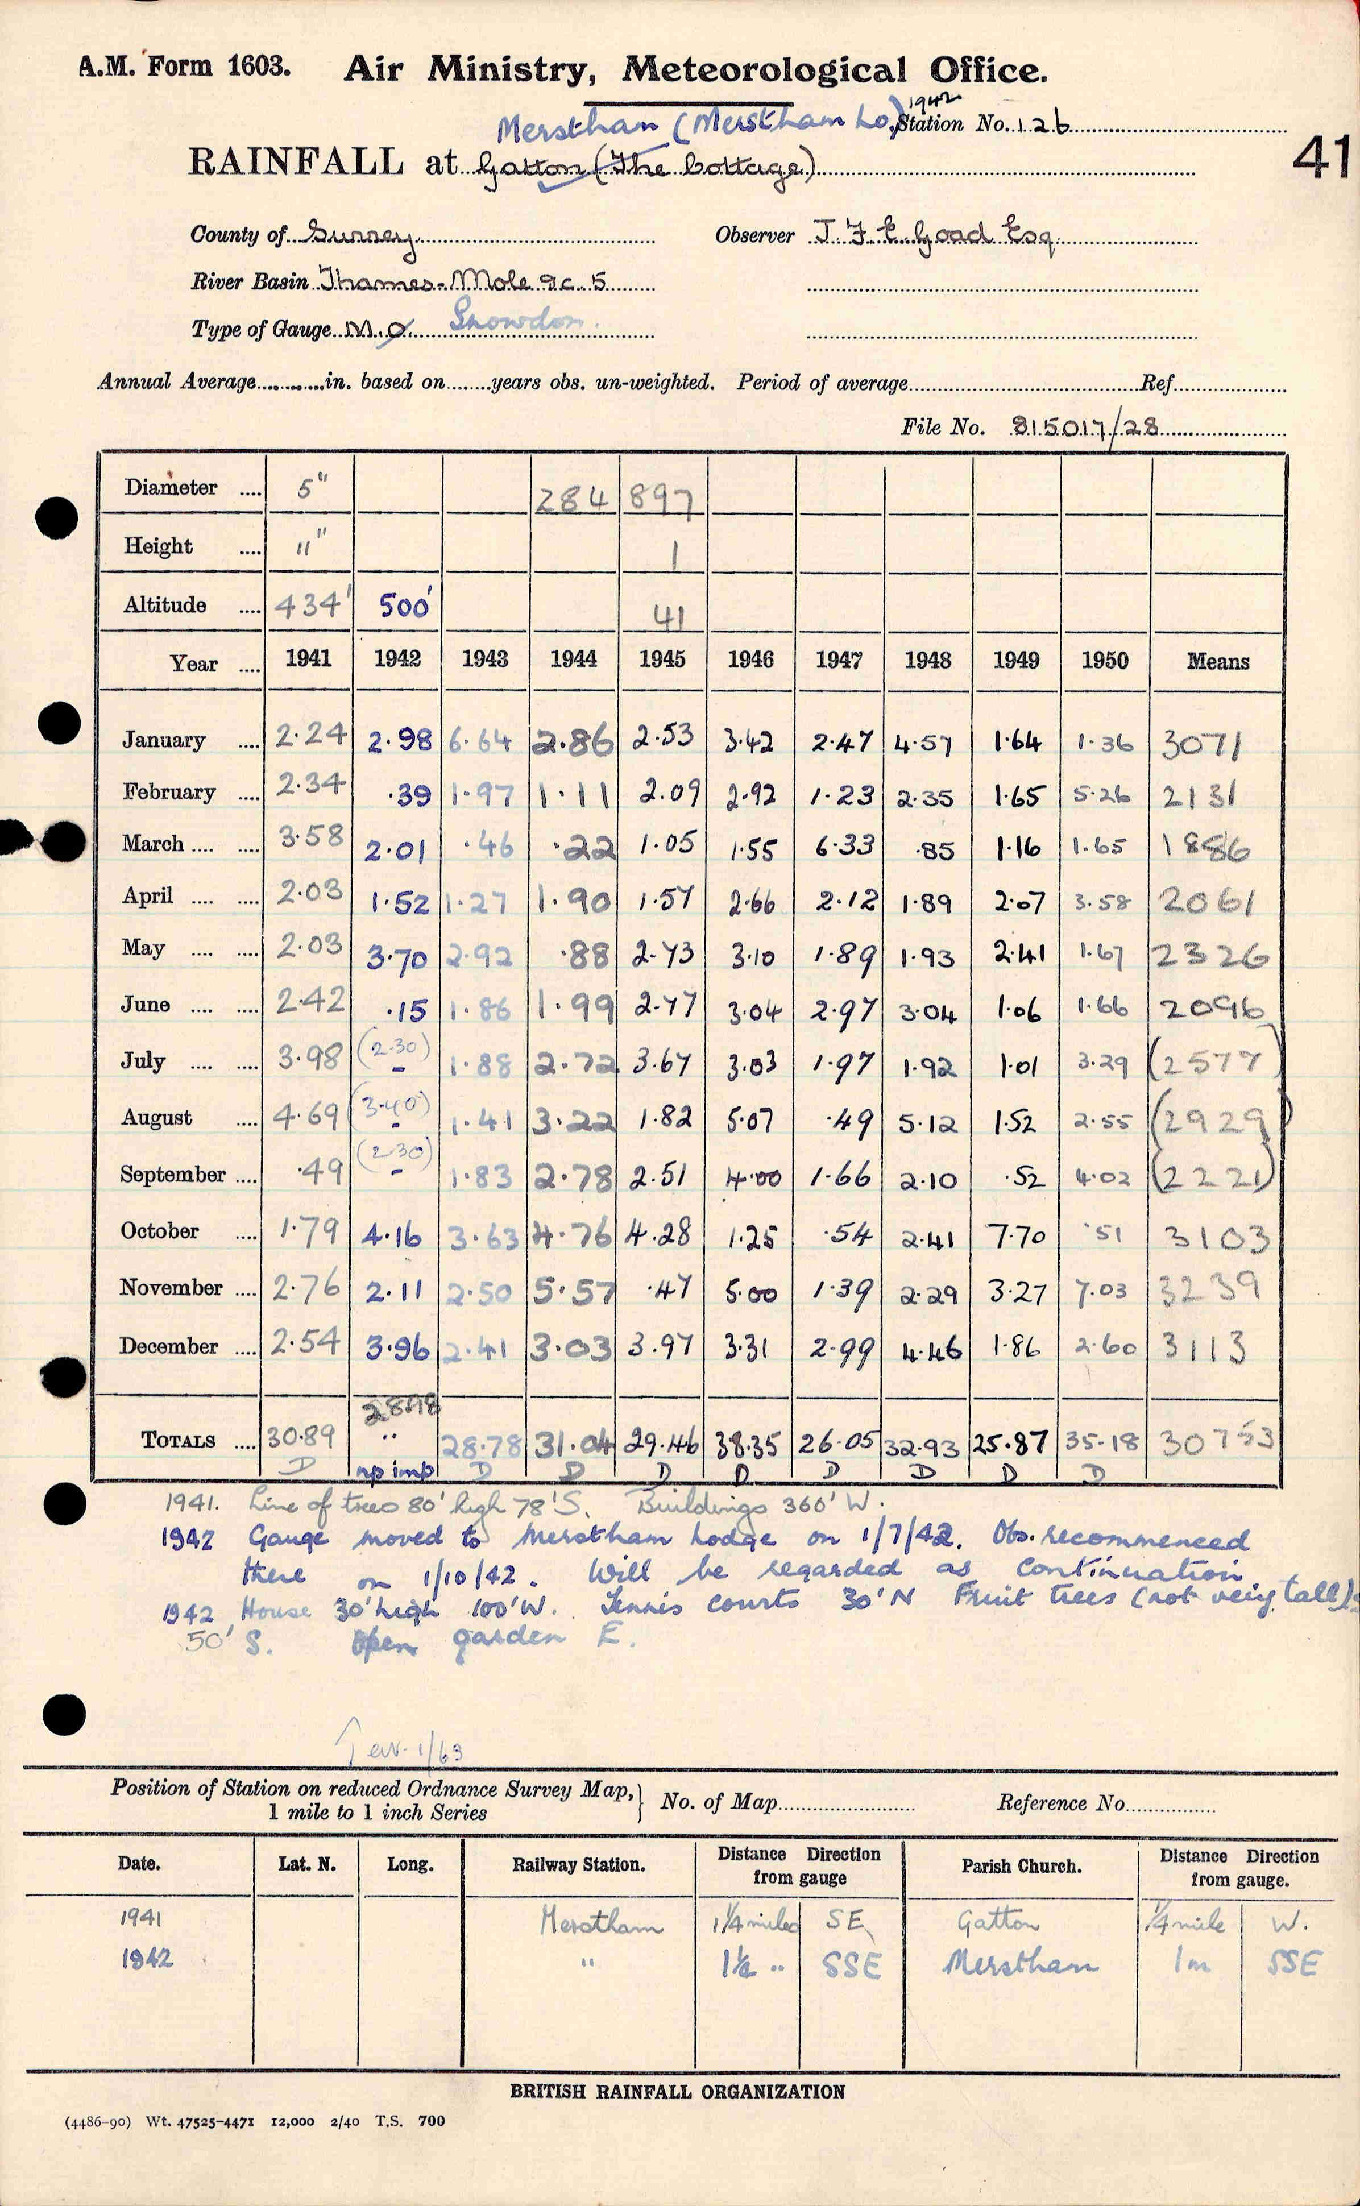 A.M. Form 1603. Air Ministry, Meteorological Office.
Merstham (Merstham Lo.) 1942 Station No. 126
41
RAINFALL at Gatton (The Cottage)
County of Surrey Observer J. F. E. Goad Esq.
River Basin Thames-Mole &c. 5
Type of Gauge M.O. Snowdon.
Annual Average in. based on years obs. un-weighted. Period of average Ref
File No. 815017/28
Diameter .... 5" 284 897
Height .... 11" 1
Altitude .... 434' 500' 41
Year .... 1941 1942 1943 1944 1945 1946 1947 1948 1949 1950 Means
January .... 2.24 2.98 6.64 2.86 2.53 3.42 2.47 4.57 1.64 1.36 3071
February .... 2.34 .39 1.97 1.11 2.09 2.92 1.23 2.35 1.65 5.26 2131
March .... .... 3.58 2.01 .46 .22 1.05 1.55 6.33 .85 1.16 1.65 1886
April .... .... 2.03 1.52 1.27 1.90 1.57 2.66 2.12 1.89 2.07 3.58 2061
May .... .... 2.03 3.70 2.92 .88 2.73 3.10 1.89 1.93 2.41 1.67 2326
June .... .... 2.42 .15 1.86 1.99 2.77 3.04 2.97 3.04 1.06 1.66 2096
July .... .... 3.98 (2.30) - 1.88 2.72 3.67 3.03 1.97 1.92 1.01 3.29 (2577)
August .... 4.69 (3.40) - 1.41 3.22 1.82 5.07 .49 5.12 1.52 2.55 (2929)
September .... .49 (2.30) - 1.83 2.78 2.51 4.00 1.66 2.10 .52 4.02 (2221)
October .... 1.79 4.16 3.63 4.76 4.28 1.25 .54 2.41 7.70 .51 3103
November .... 2.76 2.11 2.50 5.57 .47 5.00 1.39 2.29 3.27 7.03 3239
December .... 2.54 3.96 2.41 3.03 3.97 3.31 2.99 4.46 1.86 2.60 3113
28.98
TOTALS .... 30.89 " 28.78 31.04 29.46 38.35 26.05 32.93 25.87 35.18 30753
D np imp D D D D D D D D
1941. Line of trees 80' high 78' S. Buildings 360' W.
1942 Gauge moved to Merstham Lodge on 1/7/42. Obs. recommenced
there on 1/10/42. Will be regarded as continuation
1942 House 30' high 100' W. Tennis courts 30' N Fruit trees (not very tall)
50' S. Open garden E.
1/63
Position of Station on reduced Ordnance Survey Map,} No. of Map Reference No.
1 mile to 1 inch Series
Date. Lat. N. Long. Railway Station. Distance Direction from gauge Parish Church. Distance Direction from gauge.
1941 Merstham 1 1/4 miles SE Gatton 1/4 mile W.
1942 " 1 1/2 " SSE Merstham 1 m SSE
BRITISH RAINFALL ORGANIZATION
(4486-90) Wt. 47525-4471 12,000 2/40 T.S. 700